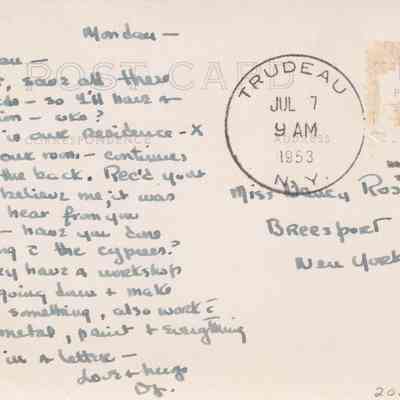 Monday —
POST CARD
, save all these
so I'll have a
— oke?
is our residence - X
CORRESPONDENCE
our room - continues
the back. Rec'd your
believe me, it was
hear from you
— have you done
c̄ the cypress?
have a workshop
going down & make
something, also work c̄
metal, paint & everything
in a letter —
Love & hugs
TRUDEAU
JUL 7
9 AM
1953
N.Y.
ADDRESS
Miss Nancy
Breesport
New York
20